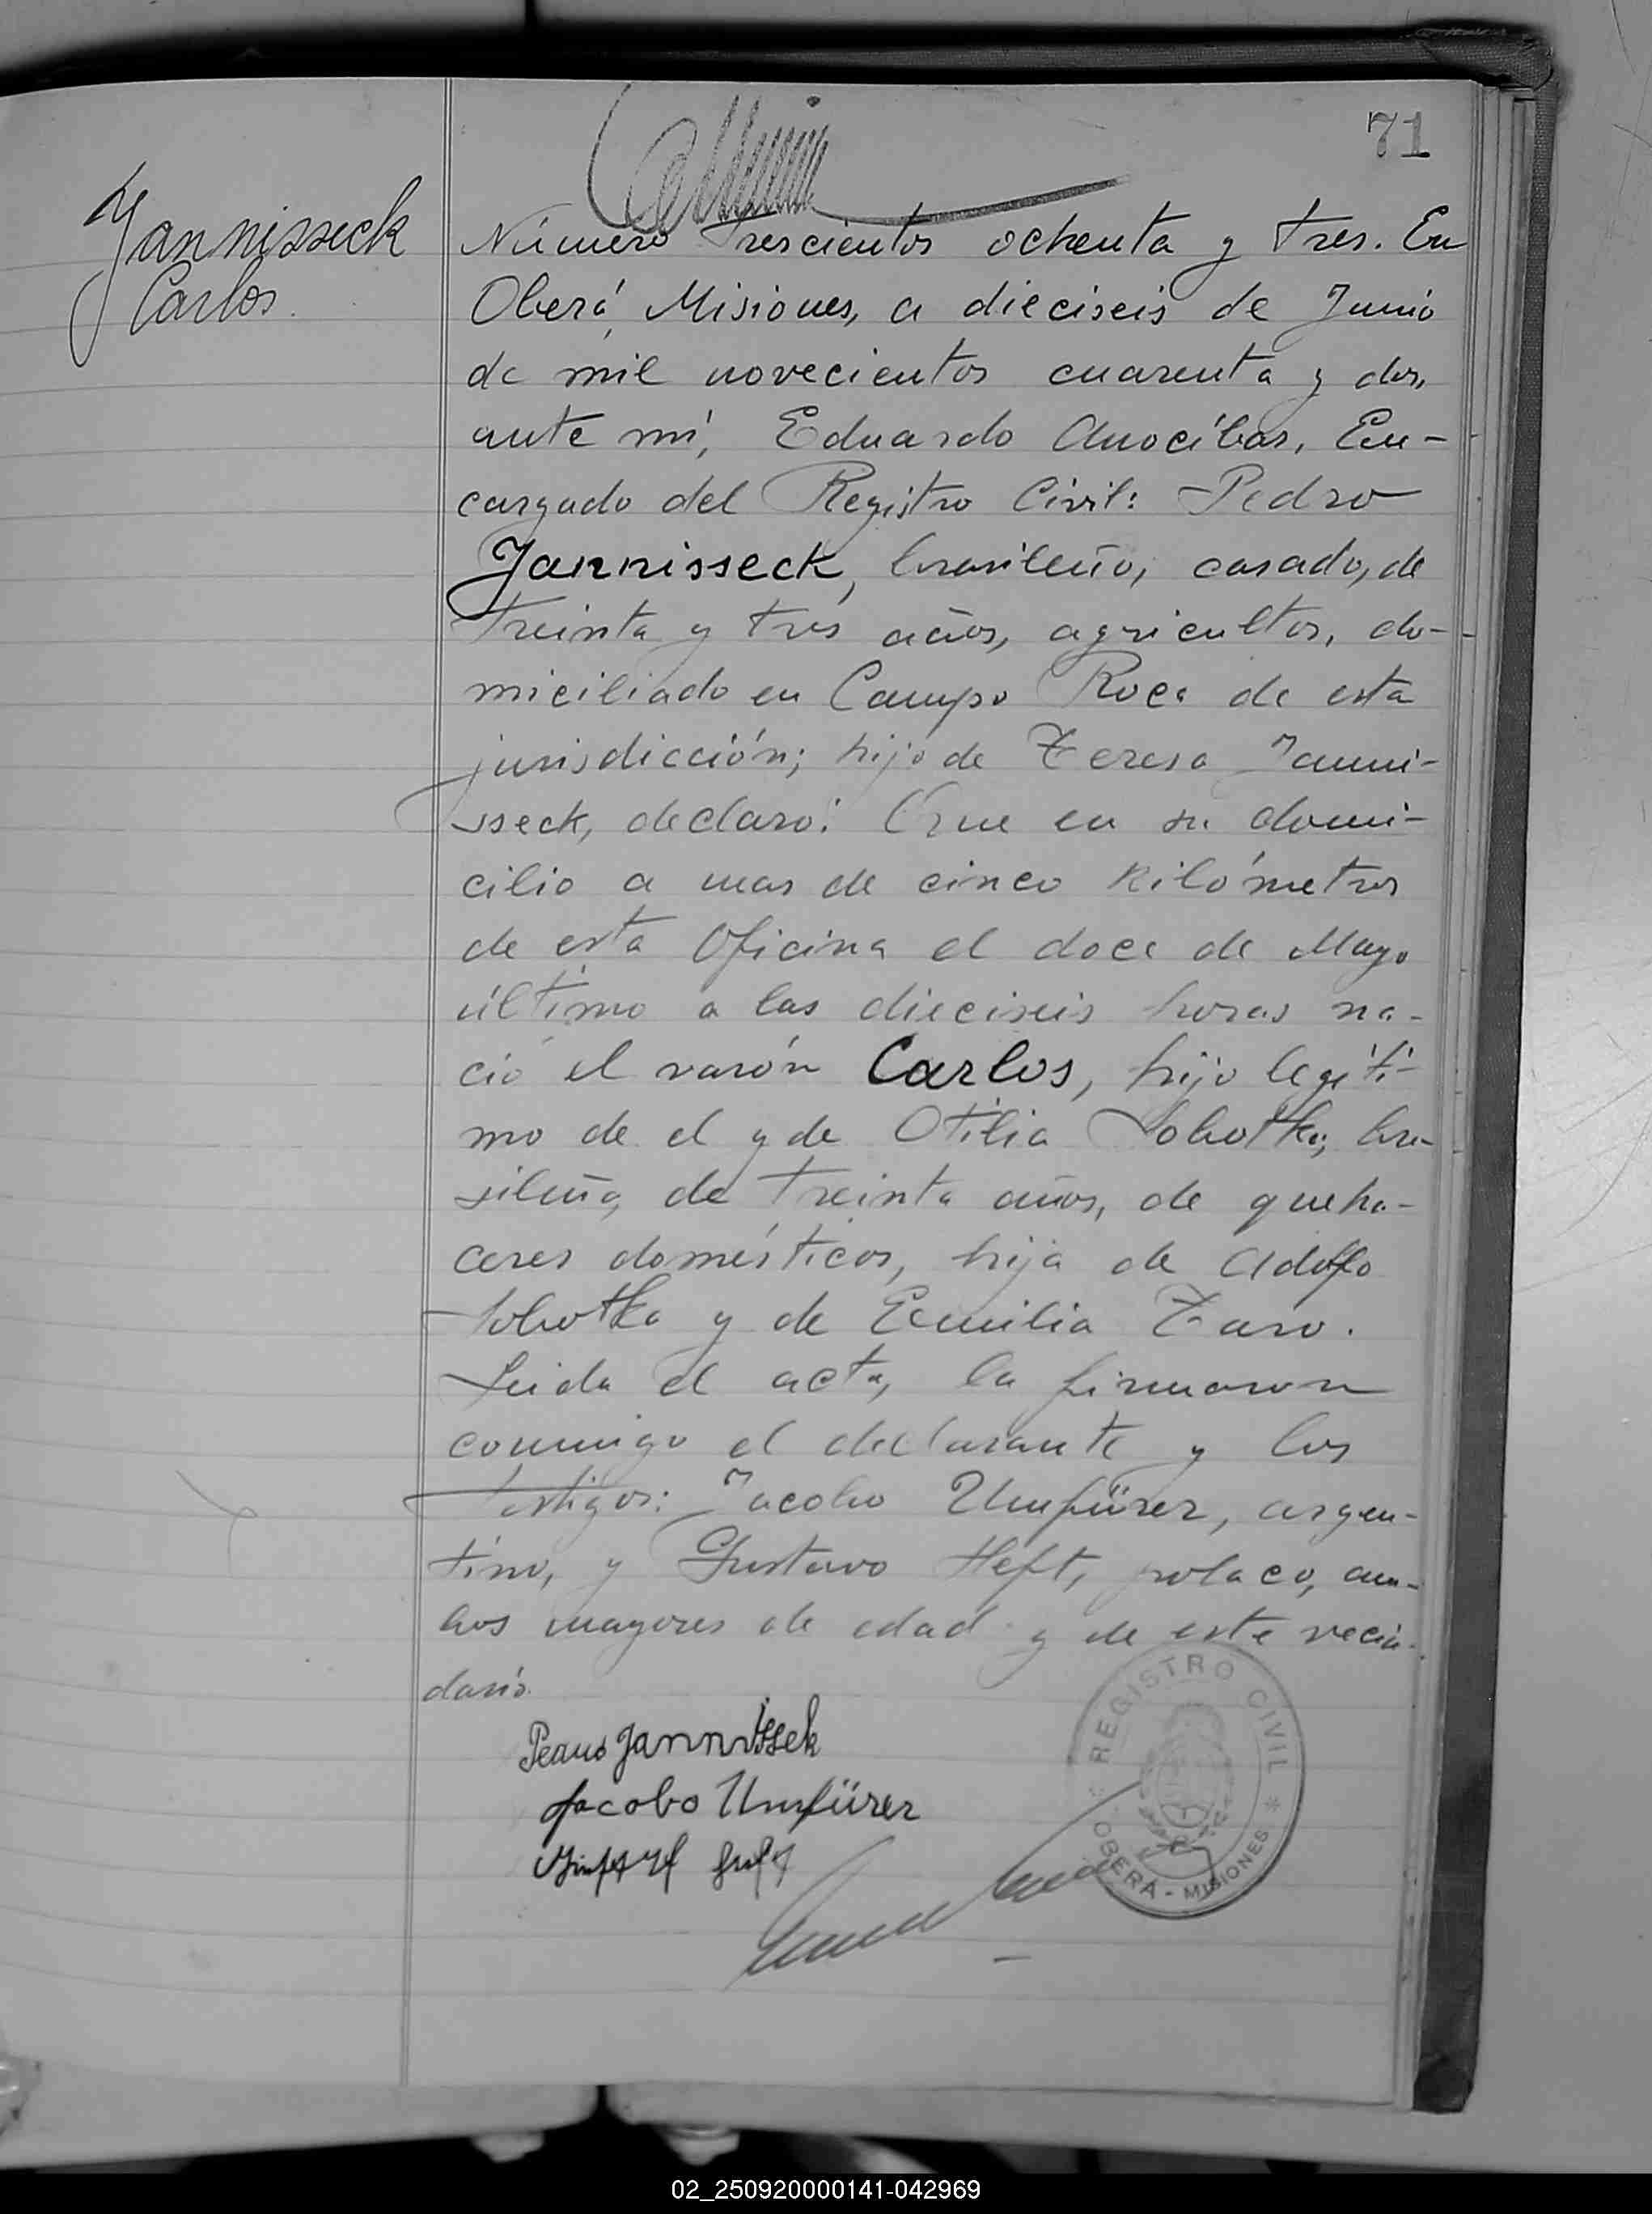 71
Jannisseck
Carlos.
Número trescientos ochenta y tres. En
Oberá, Misiones, a dieciseis de Junio
de mil novecientos cuarenta y dos,
ante mí, Eduardo Anocíbar, En-
cargado del Registro Civil: Pedro
Jannisseck, brasileño, casado, de
treinta y tres años, agricultor, do-
miciliado en Campo Roca de esta
jurisdicción; hijo de Teresa Janni-
sseck, declaró: Que en su domi-
cilio a mas de cinco kilómetros
de esta Oficina el doce de Mayo
último a las dieciseis horas na-
ció el varón Carlos, hijo legíti-
mo de el y de Otilia Sobottka, bra-
sileña, de treinta años, de queha-
ceres domésticos, hija de Adolfo
Sobottka y de Emilia
Leida el acta, la firmaron
conmigo el declarante y los
testigos: Jacobo Umfürer, argen-
tino, y Gustavo Heft, polaco, am-
bos mayores de edad y de este vecin-
dario.
Jannissek
Jacobo Umfürer
REGISTRO CIVIL
OBERÁ - MISIONES
02_250920000141-042969